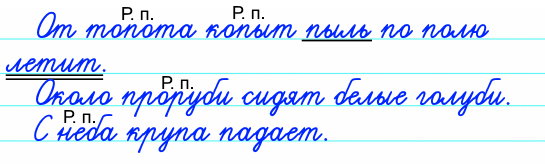 Р. п. Р. п.
От топота копыт пыль по полю
летит.
Р. п.
Около проруби сидят белые голуби.
Р. п.
С неба крупа падает.